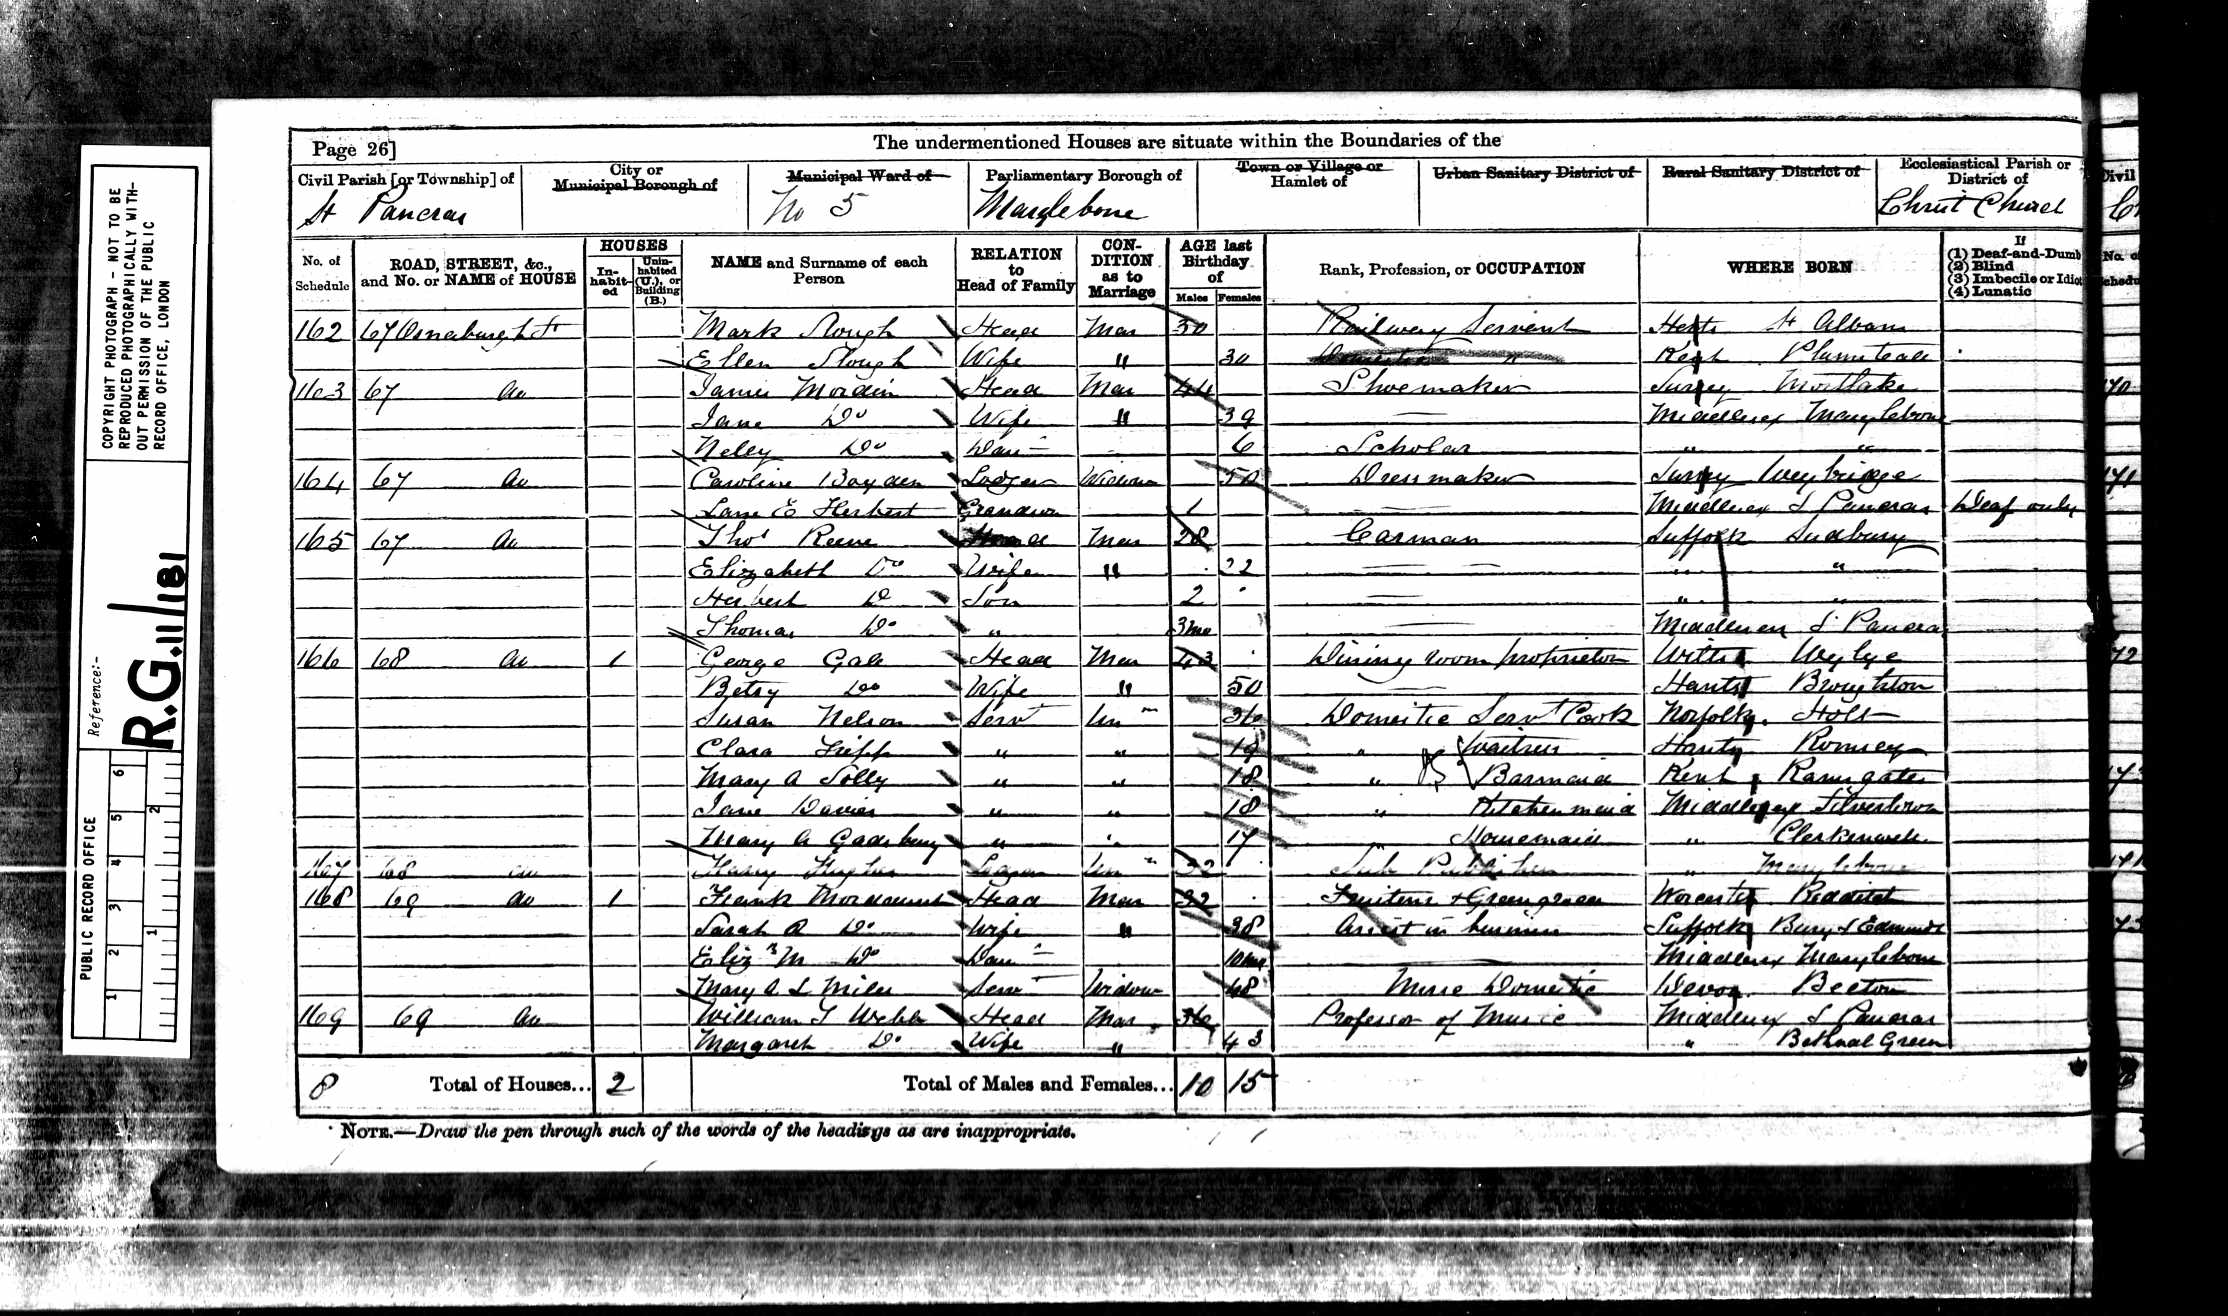 Page 26]
The undermentioned Houses are situate within the Boundaries of the
Civil Parish [or Township] of
St Pancras
City or Municipal Borough of
Municipal Ward of
No 5
Parliamentary Borough of
Marylebone
Town or Village or Hamlet of
Urban Sanitary District of
Rural Sanitary District of
Ecclesiastical Parish or District of
Christ Church
No. of Schedule
ROAD, STREET, &c., and No. or NAME of HOUSE
HOUSES
In-habit-ed
Unin-habited (U.), or Building (B.)
NAME and Surname of each Person
RELATION to Head of Family
CON-DITION as to Marriage
AGE last Birthday of
Males Females
Rank, Profession, or OCCUPATION
WHERE BORN
If
(1) Deaf-and-Dumb
(2) Blind
(3) Imbecile or Idiot
(4) Lunatic
162 67 Osnaburgh St Mark Slough Head Mar 30 Railway Servant Herts St Albans
Ellen Slough Wife " 30 Kent Plumstead
163 67 do James Mordin Head Mar 44 Shoemaker Surrey Mortlake
Jane Do Wife " 39 Middlesex Marylebone
Nelly Do Daur 6 Scholar " "
164 67 do Caroline Boyden Lodger Widow 50 Dressmaker Surrey Weybridge
E Herbert Grandson 1 Middlesex S Pancras Deaf only
165 67 do Thos Reeve Head Mar 28 Carman Suffolk Sudbury
Elizabeth Do Wife " 22 " "
Herbert Do Son 2 " "
Thomas Do " 3mo Middlesex S Pancras
166 68 do 1 George Gale Head Mar 43 Dining room proprietor Wilts Wylye
Betsy Do Wife " 50 Hants Broughton
Susan Nelson Servt Un 36 Domestic Servt Cook Norfolk Holt
Clara " " 19 " Waitress Hants Romsey
Mary A Solly " " 18 " Barmaid Kent Ramsgate
Jane Davies " " 18 " Kitchenmaid Middlesex Silvertown
Mary A Gadsbury " " 17 Housemaid " Clerkenwell
167 68 do Harry Un 32 Sub Publisher " Marylebone
168 69 do 1 Frank Mordaunt Head Mar 32 Fruiterer & Greengrocer Worcester Redditch
Sarah A Do Wife " 38 Assist in business Suffolk Bury S Edmunds
Eliz M Do Daur 10mo Middlesex Marylebone
Mary A L Miles Servt Widow 48 Nurse Domestic Devon Beeton
169 69 do William T Webb Head Mar 36 Professor of Music Middlesex S Pancras
Margaret Do Wife " 43 " Bethnal Green
8 Total of Houses... 2 Total of Males and Females... 10 15
NOTE.—Draw the pen through such of the words of the headings as are inappropriate.
COPYRIGHT PHOTOGRAPH - NOT TO BE
REPRODUCED PHOTOGRAPHICALLY WITH-
OUT PERMISSION OF THE PUBLIC
RECORD OFFICE, LONDON
Reference:-
R.G. 11/181
PUBLIC RECORD OFFICE
1 2 3 4 5 6
1 2